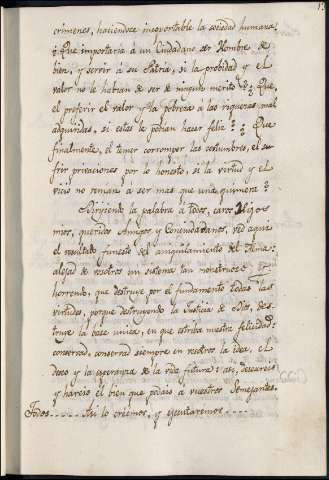 crimenes, haciendose insoportable la sociedad humana?
¿Que importaria á un Ciudadano ser Hombre de
bien, y servir á su Patria, si la probidad y el
valor no le habian de ser de ningun merito? ¿Que
el preferir el valor y la pobreza á las riquezas mal
adquiridas, si estas le podian hacer feliz? ¿Que
finalmente, el temer corromper las costumbres, el su
frir privaciones por lo honesto, si la virtud y el
vicio no venian á ser mas que una quimera?
Dirijiendo la palabra á todos, caros Hijos
mios, queridos Amigos y Conciudadanos, ved aqui
el resultado funesto del aniquilamiento del Alma:
alejad de vosotros un sistema tan monstruoso y
horrendo, que destruye por el fundamento todas las
virtudes, porque destruyendo la Justicia de Dios, des
truye la base unica, en que estriba nuestra felicidad:
conservad, conservad siempre en vosotros la idea, el
deseo y la esperanza de la vida futura: asi, deseareis
y hareis el bien que podais á vuestros Semejantes.
Todos..... Asi lo creemos, y ejecutaremos.....